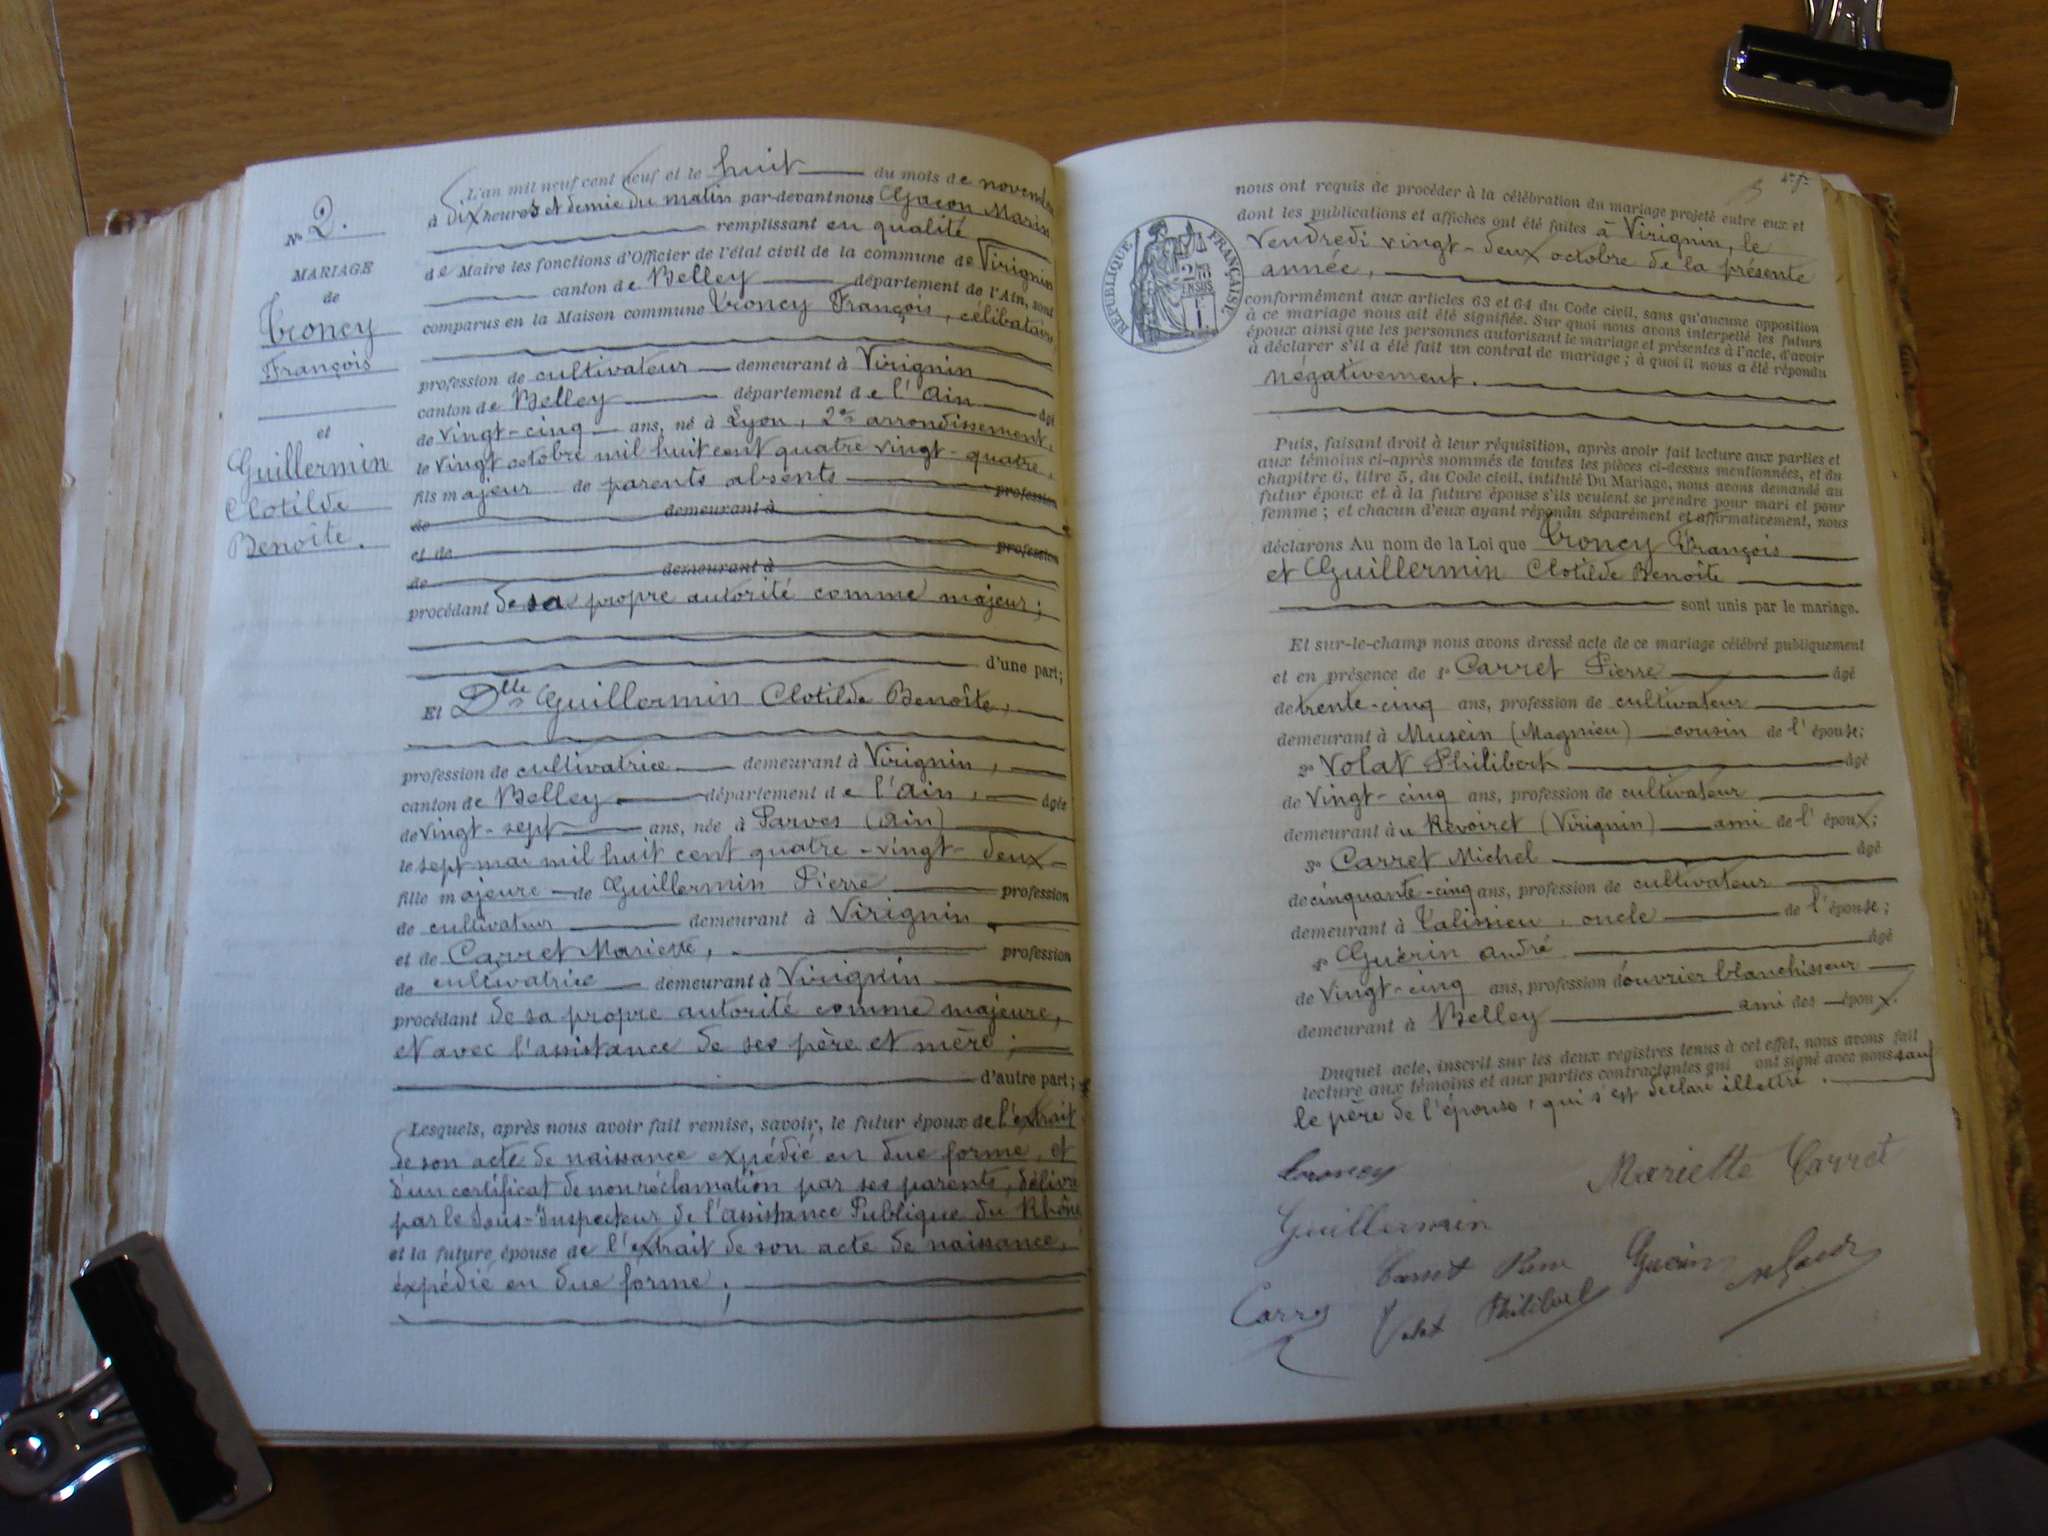 N° 2.
MARIAGE
de
Troncy
François
et
Guillermin
Clotilde
Benoîte.
L'an mil neuf cent neuf et le huit du mois de novembre
à dix heures et demie du matin par-devant nous Gacon Marin
remplissant en qualité
de Maire les fonctions d'Officier de l'état civil de la commune de Virignin
canton de Belley département de l'Ain, sont
comparus en la Maison commune Troncy François, célibataire,
profession de cultivateur demeurant à Virignin
canton de Belley département de l'Ain âgé
de vingt-cinq ans, né à Lyon, 2e arrondissement,
le vingt octobre mil huit cent quatre vingt-quatre,
fils majeur de parents absents profession
de demeurant à
et de profession
de demeurant à
procédant de sa propre autorité comme majeur;
d'une part;
Et Dlle Guillermin Clotilde Benoîte,
profession de cultivatrice demeurant à Virignin,
canton de Belley département de l'Ain, âgée
de vingt-sept ans, née à Parves (Ain)
le sept mai mil huit cent quatre-vingt-deux
fille majeure de Guillermin Pierre profession
de cultivateur demeurant à Virignin
et de Carret Mariette, profession
de cultivatrice demeurant à Virignin
procédant de sa propre autorité comme majeure,
et avec l'assistance de ses père et mère;
d'autre part;
Lesquels, après nous avoir fait remise, savoir, le futur époux de l'extrait
de son acte de naissance expédié en due forme, et
d'un certificat de non réclamation par ses parents, délivré
par le Sous-Inspecteur de l'assistance Publique du Rhône
et la future épouse de l'extrait de son acte de naissance,
expédié en due forme,
nous ont requis de procéder à la célébration du mariage projeté entre eux et
dont les publications et affiches ont été faites à Virignin, le
vendredi vingt-deux octobre de la présente
année,
RÉPUBLIQUE FRANÇAISE
conformément aux articles 63 et 64 du Code civil, sans qu'aucune opposition
à ce mariage nous ait été signifiée. Sur quoi nous avons interpellé les futurs
époux ainsi que les personnes autorisant le mariage et présentes à l'acte, d'avoir
à déclarer s'il a été fait un contrat de mariage; à quoi il nous a été répondu
négativement.
Puis, faisant droit à leur réquisition, après avoir fait lecture aux parties et
aux témoins ci-après nommés de toutes les pièces ci-dessus mentionnées, et du
chapitre 6, titre 5, du Code civil, intitulé Du Mariage, nous avons demandé au
futur époux et à la future épouse s'ils veulent se prendre pour mari et pour
femme; et chacun d'eux ayant répondu séparément et affirmativement, nous
déclarons Au nom de la Loi que Troncy François
et Guillermin Clotilde Benoîte
sont unis par le mariage.
Et sur-le-champ nous avons dressé acte de ce mariage célébré publiquement
et en présence de 1° Carret Pierre âgé
de trente-cinq ans, profession de cultivateur
demeurant à Musein (Magnieu) cousin de l'épouse;
2° Volat Philibert âgé
de vingt-cinq ans, profession de cultivateur
demeurant àu Revoiret (Virignin) ami de l'époux;
3° Carret Michel âgé
de cinquante-cinq ans, profession de cultivateur
demeurant à Talissieu, oncle de l'épouse;
4° Guérin André âgé
de vingt-cinq ans, profession d'ouvrier blanchisseur
demeurant à Belley ami des époux.
Duquel acte, inscrit sur les deux registres tenus à cet effet, nous avons fait
lecture aux témoins et aux parties contractantes qui ont signé avec nous sauf
le père de l'épouse, qui s'est déclaré illettré.
Troncy
Mariette Carret
Guillermin
Carret Pierre
Guérin
Volat Philibert